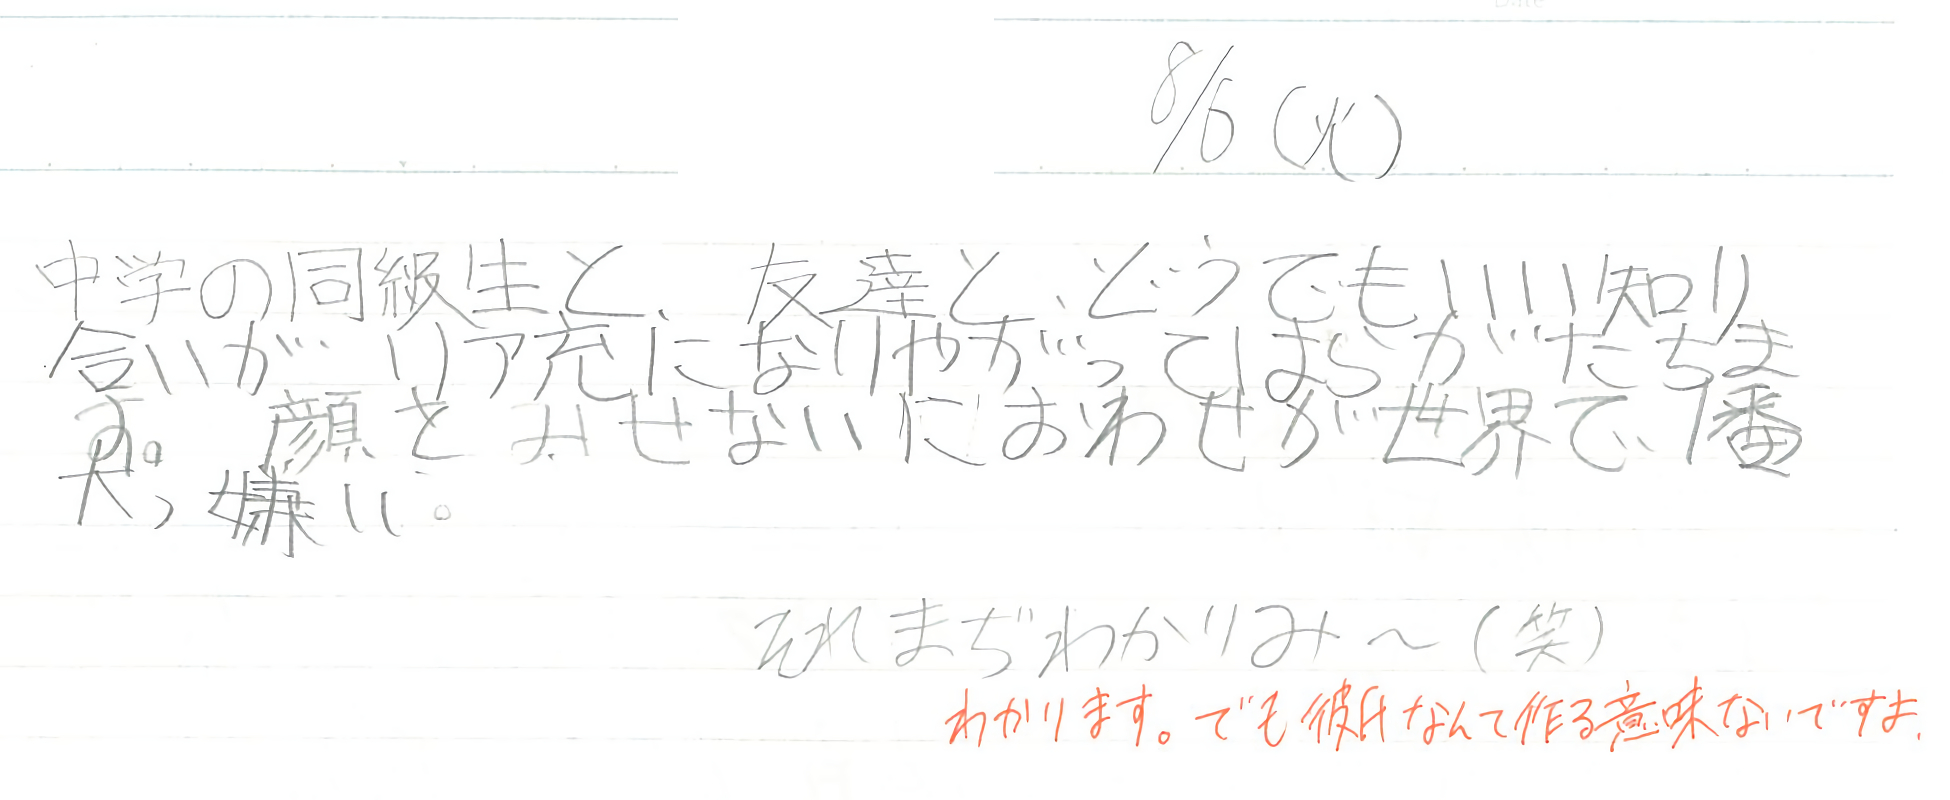 8/6(火)
中学の同級生と、友達と、どうでもいいい知り
合いが リア充になりやがってはらがたちま
す。 顔をみせないにおわせが世界で、1番
大っ嫌い。
それまぢわかりみ〜(笑)
わかります。でも彼氏なんて作る意味ないですよ.